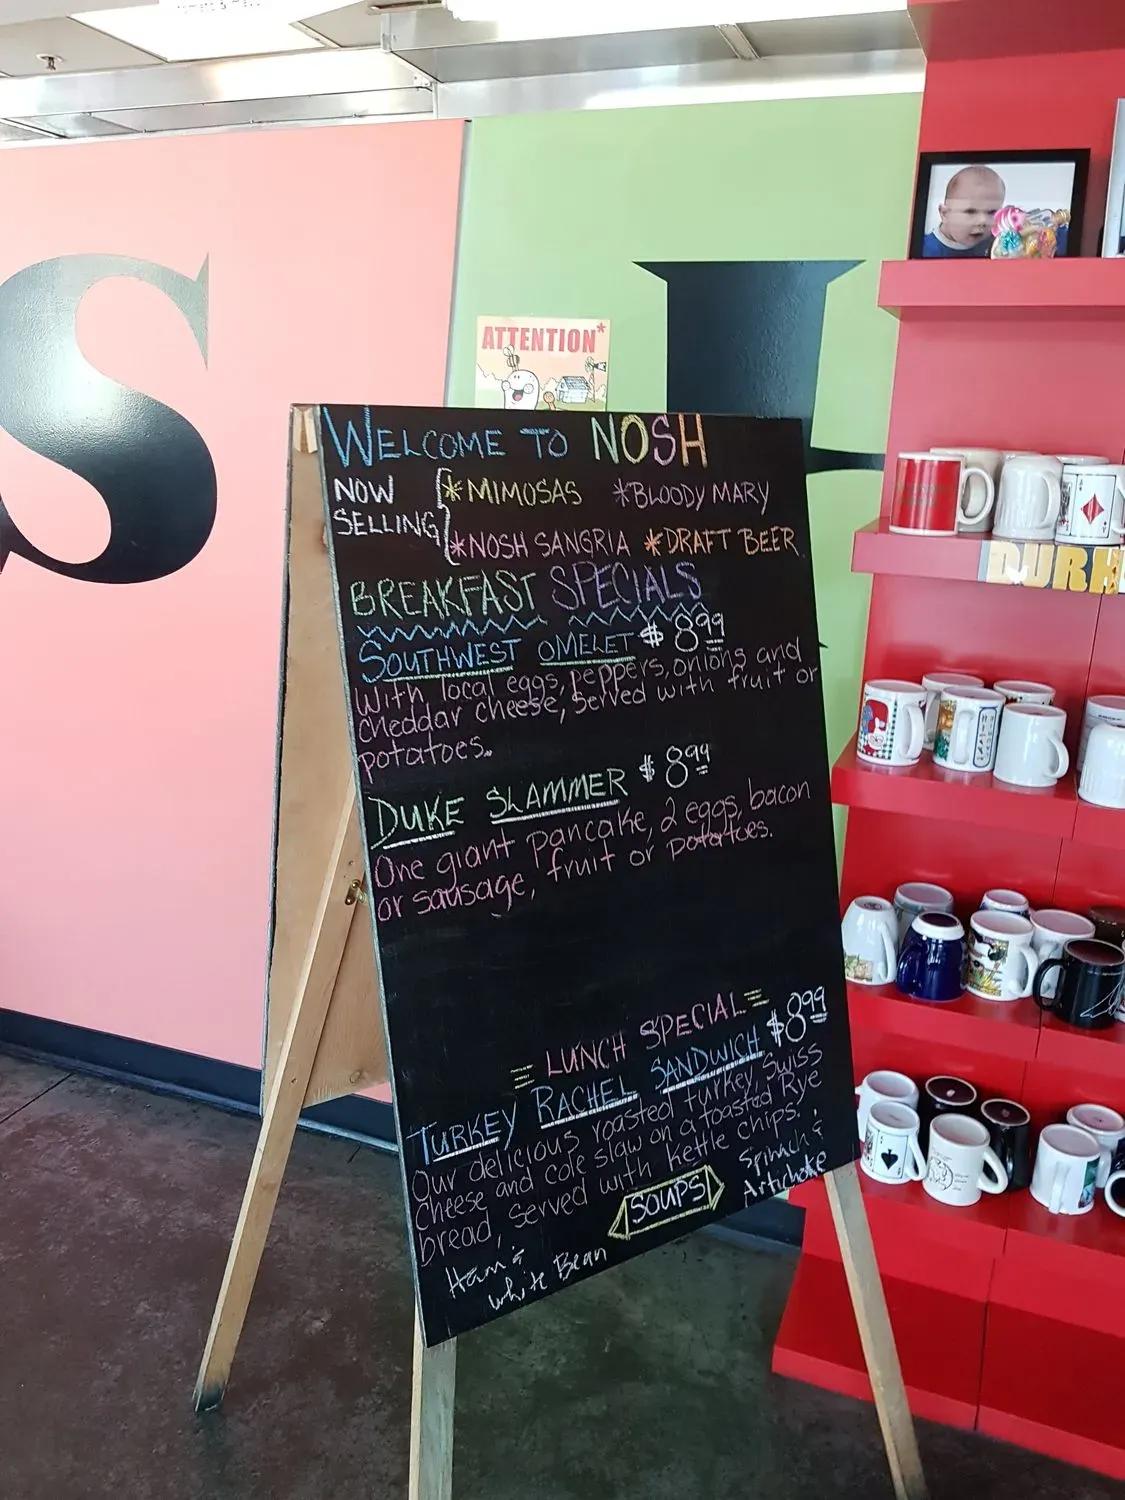 S
H
ATTENTION*
WELCOME TO NOSH
NOW SELLING { *MIMOSAS *BLOODY MARY
*NOSH SANGRIA *DRAFT BEER
BREAKFAST SPECIALS
SOUTHWEST OMELET $8.99
With local eggs, peppers, onions and
cheddar cheese, served with fruit or
potatoes.
DUKE SLAMMER $8.99
One giant pancake, 2 eggs, bacon
or sausage, fruit or potatoes.
= LUNCH SPECIAL =
TURKEY RACHEL SANDWICH $8.99
Our delicious roasted turkey, Swiss
cheese and cole slaw on a toasted Rye
bread, served with kettle chips.
SOUPS
Spinach &
Artichoke
Ham &
white Bean
DURH